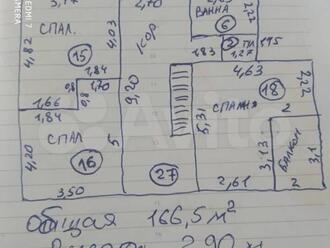 2,70
ВАННА
2,22
6
СПАЛ.
4,03
КОР
4,82
15
2
ПЛ
1,83
1,27
1,84
4,63
0,8
1,70
0,8
18
2,22
1,66
9,20
СПАЛЬНЯ
1,84
5,31
2
СПАЛ
5
4,20
16
3,13
БАЛКОН
3,1
27
3,50
2,61
2
общая 166,5 м²